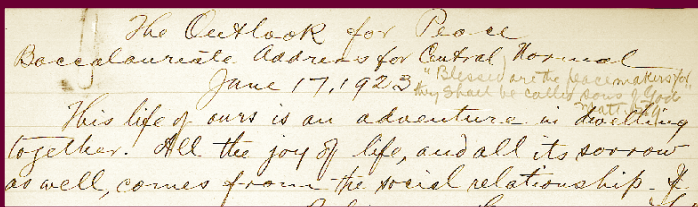 The Outlook for Peace
Baccalaureate Address for Central Normal
June 17, 1923
"Blessed are the peacemakers for
they shall be called sons of God"
Matt. 5:9
This life of ours is an adventure in dwelling
together. All the joy of life, and all its sorrow
as well, comes from the social relationship. If